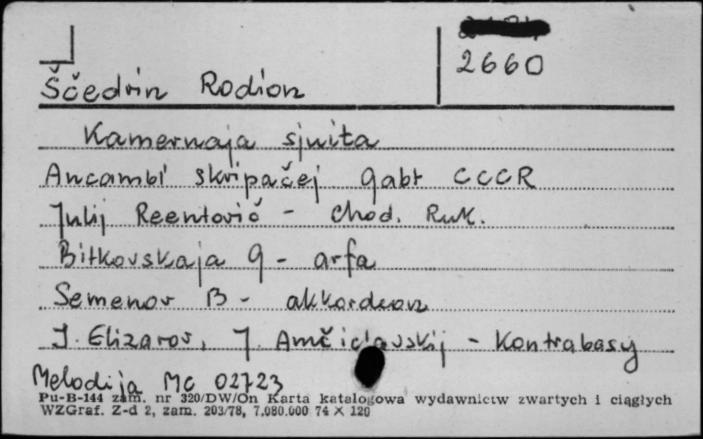 2660
Ščedrin Rodion
Kamernaja sjuita
Ancambl skripačej gabt CCCR
Julij Reentovič - Chod. Ruk.
Bitkovskaja G - arfa
Semenov B - akkordeon
J. Elizarov, J. - Kontrabasy
Melodija MC 02723
Pu-B-144 zam. nr 320/DW/On Karta katalogowa wydawnictw zwartych i ciągłych
WZGraf. Z-d 2, zam. 203/78, 7.080.000 74 × 120